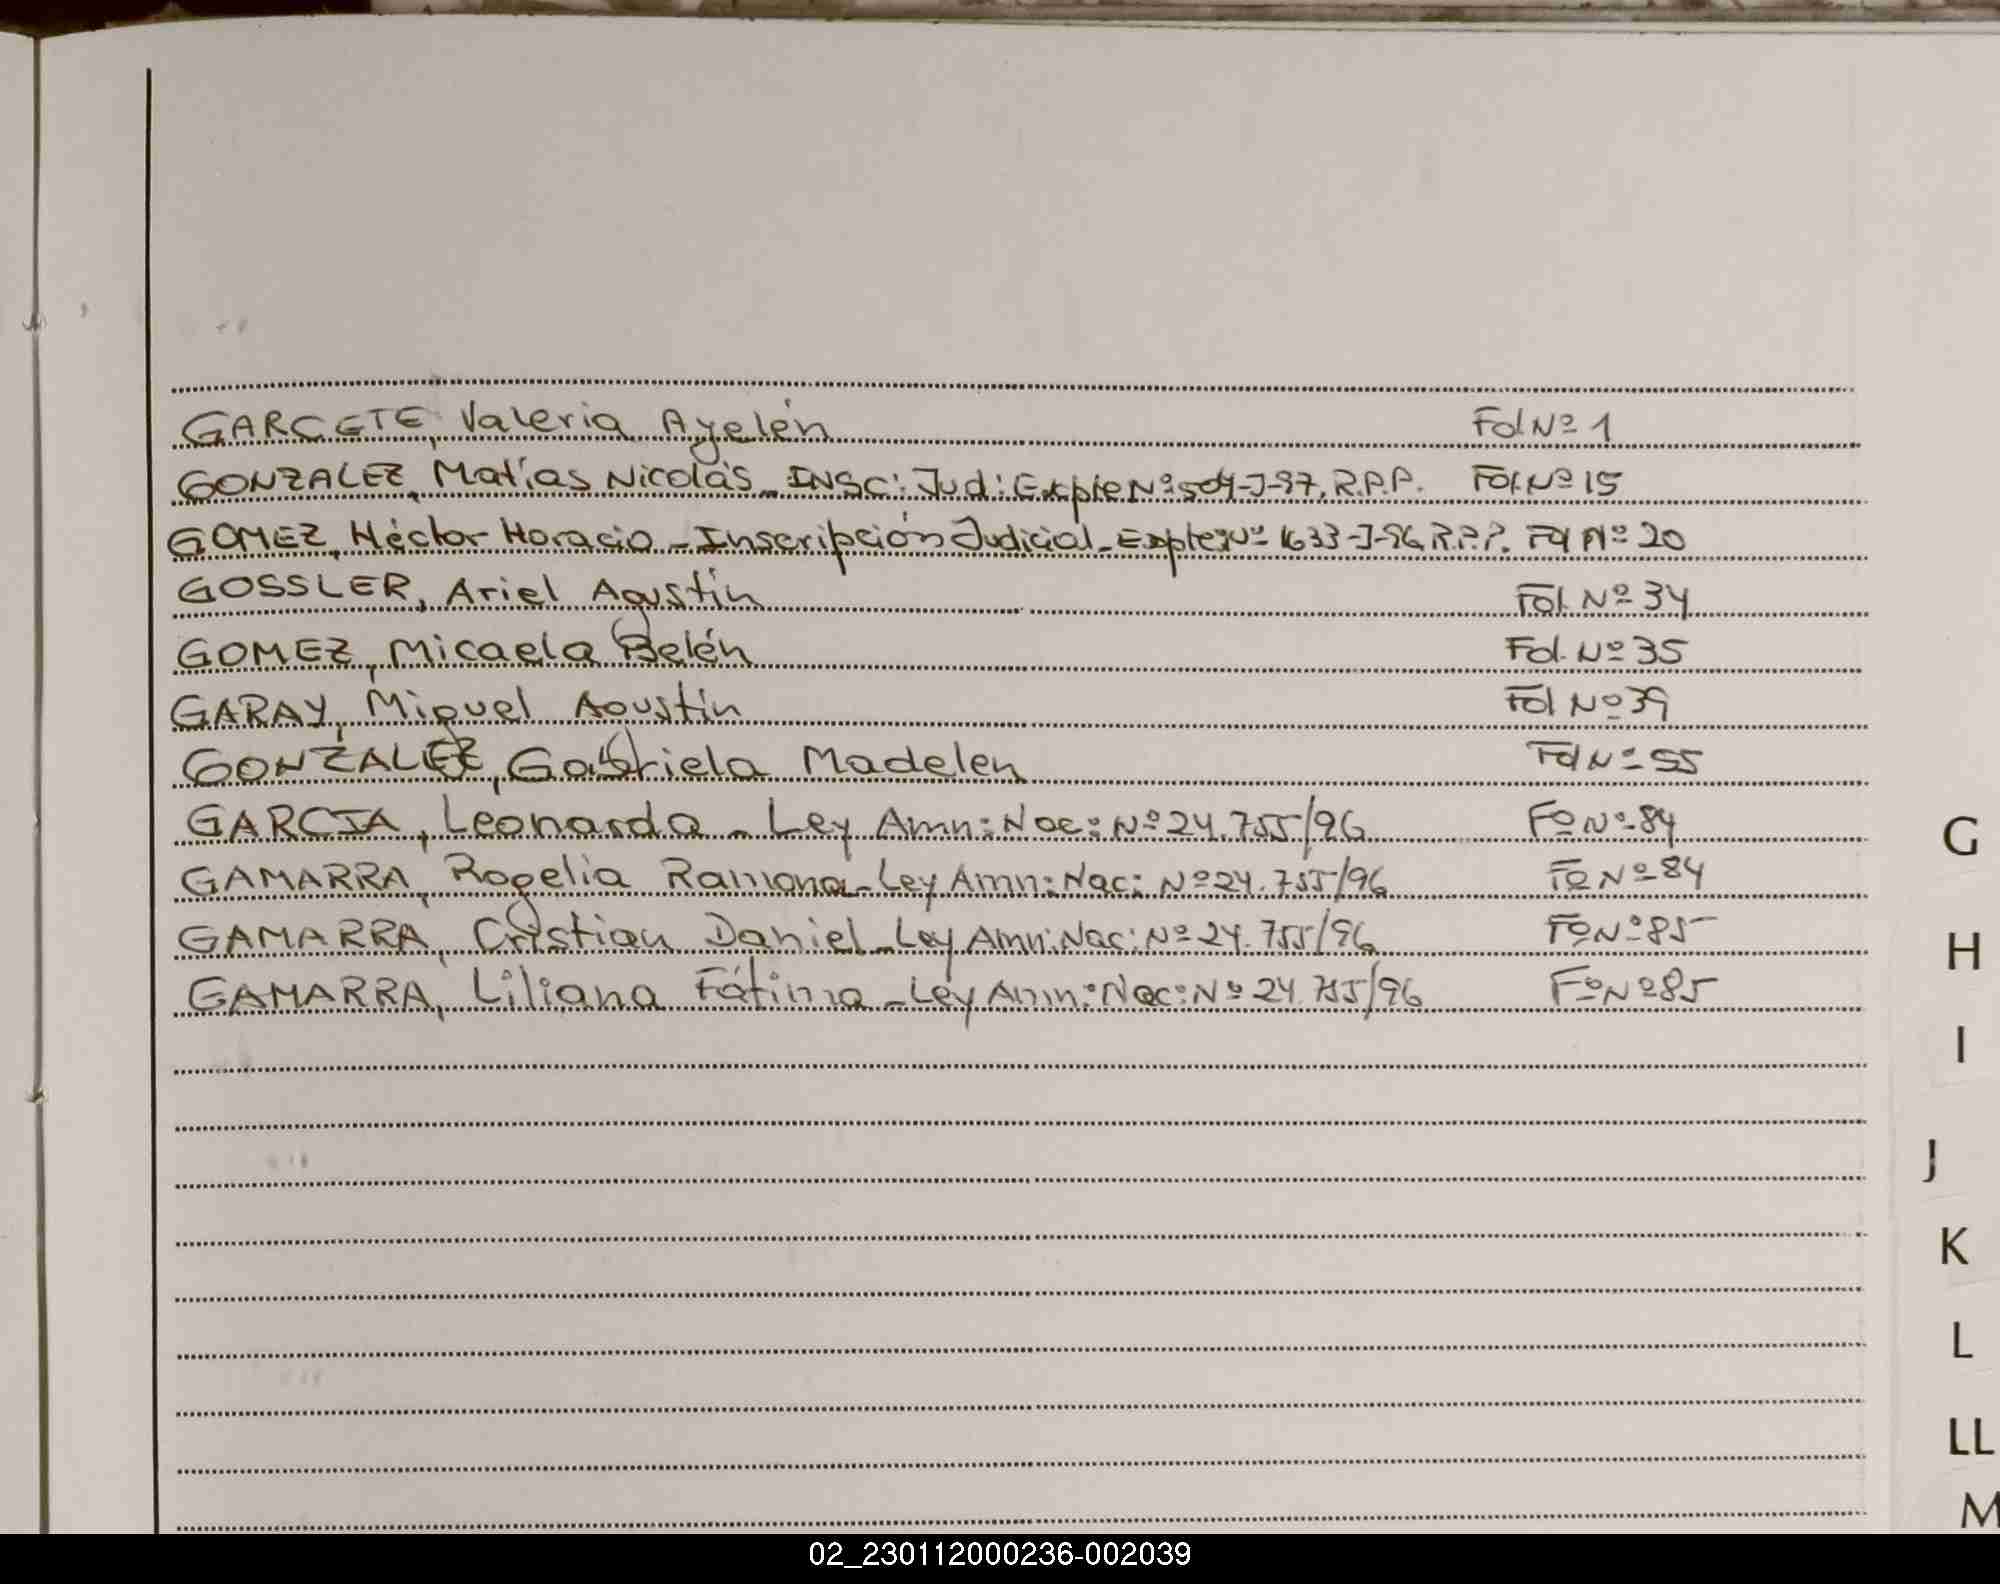 GARCETE, Valeria Ayelén Fol Nº 1
GONZALEZ, Matías Nicolás - INSC: Jud: Expte Nº 504-J-97, R.P.P. Fol. Nº 15
GOMEZ, Héctor Horacio - Inscripción Judicial - Expte: Nº 1633-J-96, R.P.P. Fol Nº 20
GOSSLER, Ariel Agustín Fol. Nº 34
GOMEZ, Micaela Belén Fol. Nº 35
GARAY, Miguel Agustín Fol Nº 39
GONZALEZ, Gabriela Madelen Fol Nº 55
GARCIA, Leonardo - Ley Amn: Nac: Nº 24.755/96 Fº Nº 84
GAMARRA, Rogelia Ramona - Ley Amn: Nac: Nº 24.755/96 Fº Nº 84
GAMARRA, Cristian Daniel - Ley Amn: Nac: Nº 24.755/96 Fº Nº 85
GAMARRA, Liliana Fátima - Ley Amn: Nac: Nº 24.755/96 Fº Nº 85
G
H
I
J
K
L
LL
M
02_230112000236-002039